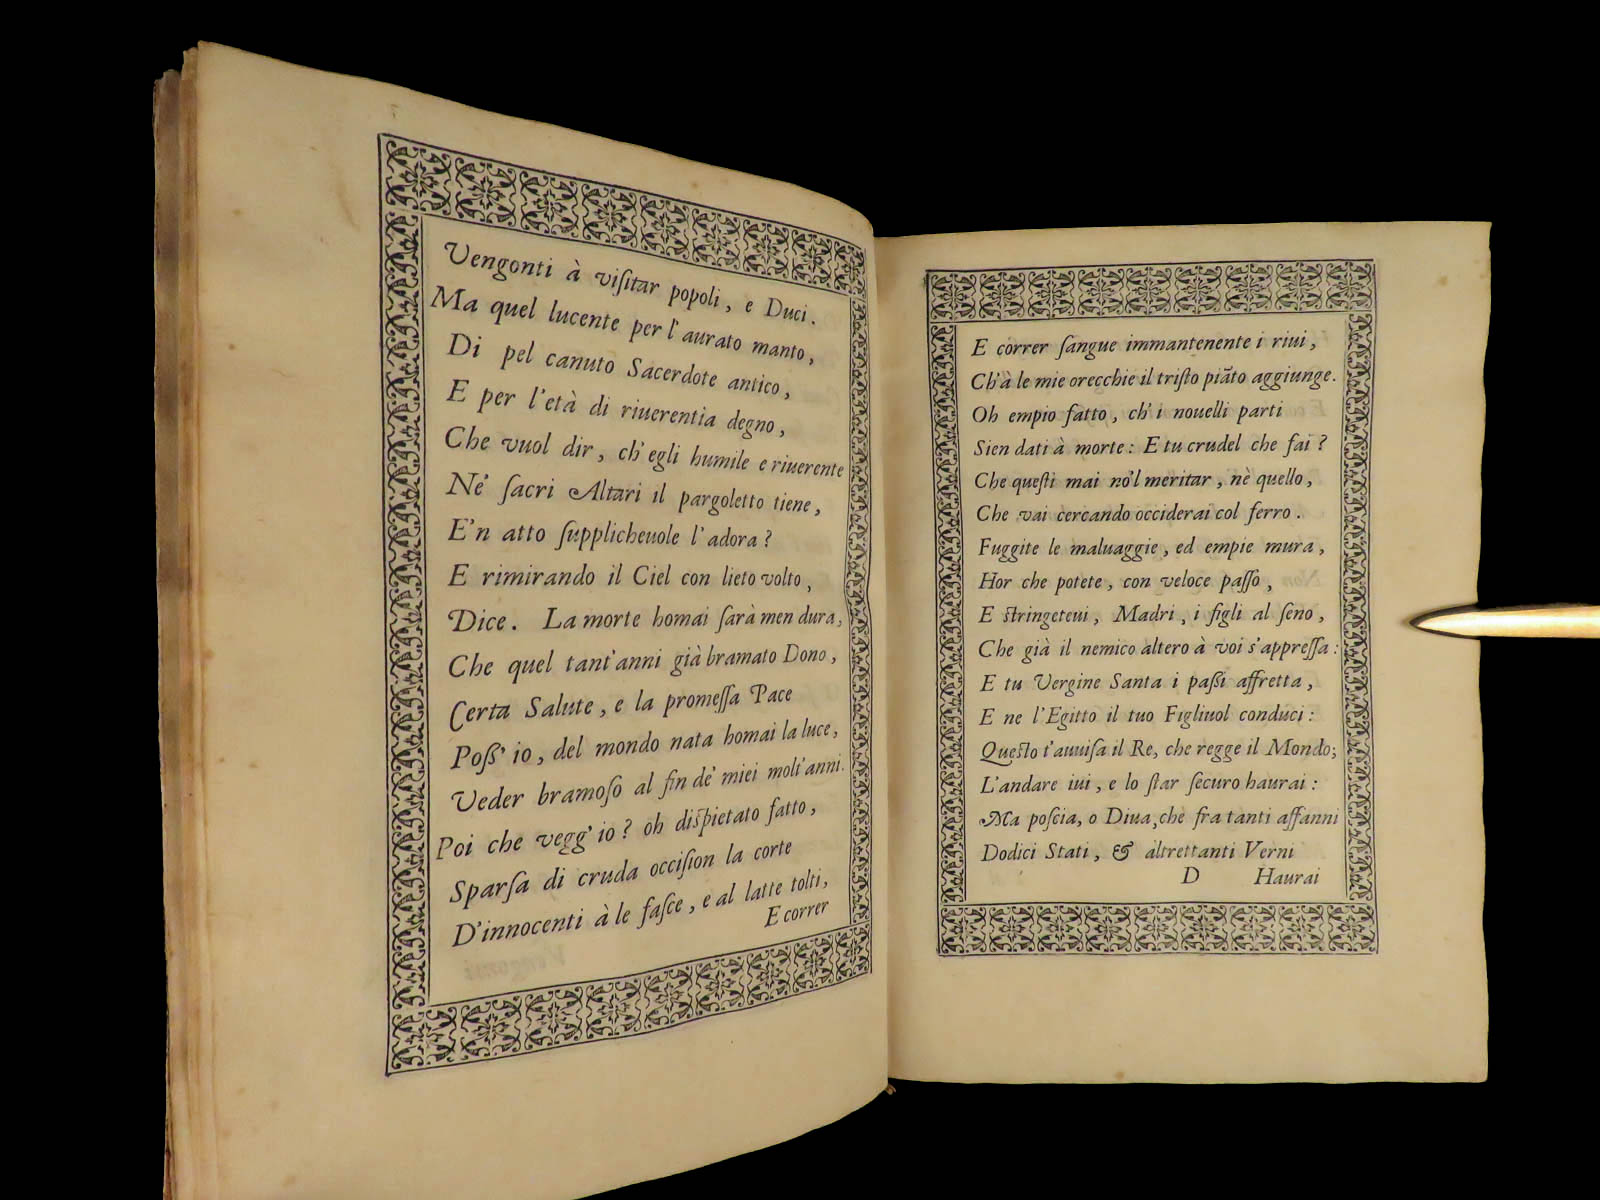 Vengonti à viſitar popoli, e Duci.
Ma quel lucente per l'aurato manto,
Di pel canuto Sacerdote antico,
E per l'età di riuerentia degno,
Che vuol dir, ch'egli humile e riuerente
Ne' ſacri Altari il pargoletto tiene,
E'n atto ſupplicheuole l'adora?
E rimirando il Ciel con lieto volto,
Dice. La morte homai ſarà men dura,
Che quel tant'anni già bramato Dono,
Certa Salute, e la promeſſa Pace
Poſſ' io, del mondo nata homai la luce,
Veder bramoſo al fin de' miei molt'anni.
Poi che vegg' io? oh diſpietato fatto,
Sparſa di cruda occiſion la corte
D'innocenti à le faſce, e al latte tolti,
E correr
E correr ſangue immantenente i riui,
Ch'à le mie orecchie il triſto piãto aggiunge.
Oh empio fatto, ch' i nouelli parti
Sien dati à morte: E tu crudel che fai?
Che queſti mai nõ'l meritar, nè quello,
Che vai cercando occiderai col ferro.
Fuggite le maluaggie, ed empie mura,
Hor che potete, con veloce paſſo,
E ſtringeteui, Madri, i figli al ſeno,
Che già il nemico altero à voi s'appreſſa:
E tu Vergine Santa i paſſi affretta,
E ne l'Egitto il tuo Figliuol conduci:
Queſto t'auuiſa il Re, che regge il Mondo;
L'andare iui, e lo ſtar ſecuro haurai:
Ma poſcia, o Diua, che fra tanti affanni
Dodici Stati, & altrettanti Verni
D Haurai